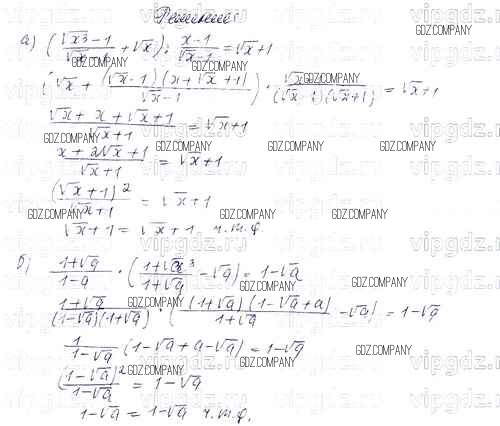 Решение:
а) (√x³ − 1 / √x − 1 + √x) : x − 1 / √x − 1 = √x + 1
(√x + (√x − 1)(x + √x + 1) / √x − 1) · √x − 1 / (√x − 1)(√x + 1) = √x + 1
√x + x + √x + 1 / √x + 1 = √x + 1
x + 2√x + 1 / √x + 1 = √x + 1
(√x + 1)² / √x + 1 = √x + 1
√x + 1 = √x + 1 ч.т.д.
б) 1 + √a / 1 − a · (1 + √a³ / 1 + √a − √a) = 1 − √a
1 + √a / (1 − √a)(1 + √a) · ((1 + √a)(1 − √a + a) / 1 + √a − √a) = 1 − √a
1 / 1 − √a (1 − √a + a − √a) = 1 − √a
(1 − √a)² / 1 − √a = 1 − √a
1 − √a = 1 − √a ч.т.д.